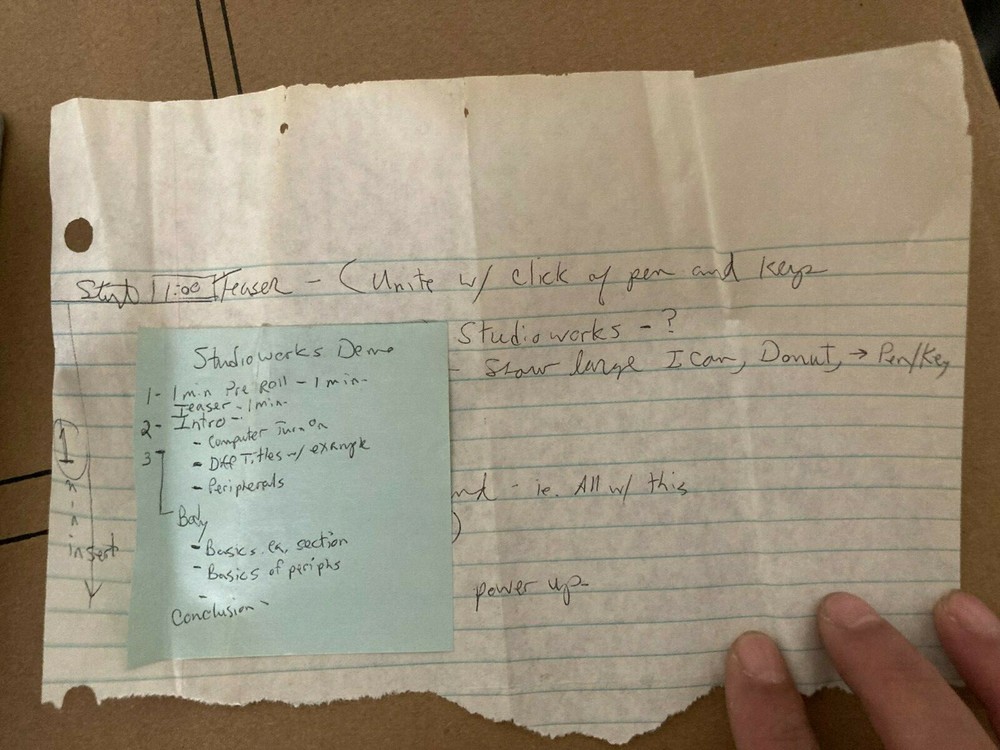 Start 1:00 Teaser - (Unite w/ click of pen and keys
Studioworks - ?
- Show large Icon, Donut, → Pen/Key
nd - ie. All w/ this
)
power up
1
min
insert
Studioworks Demo
1- 1 min Pre Roll - 1 min.
Teaser - 1 min.
2- Intro -
- Computer Turn On
3 - Diff Titles w/ example
- Peripherals
Body
- Basics ea. section
- Basics of periphs
-
Conclusion -